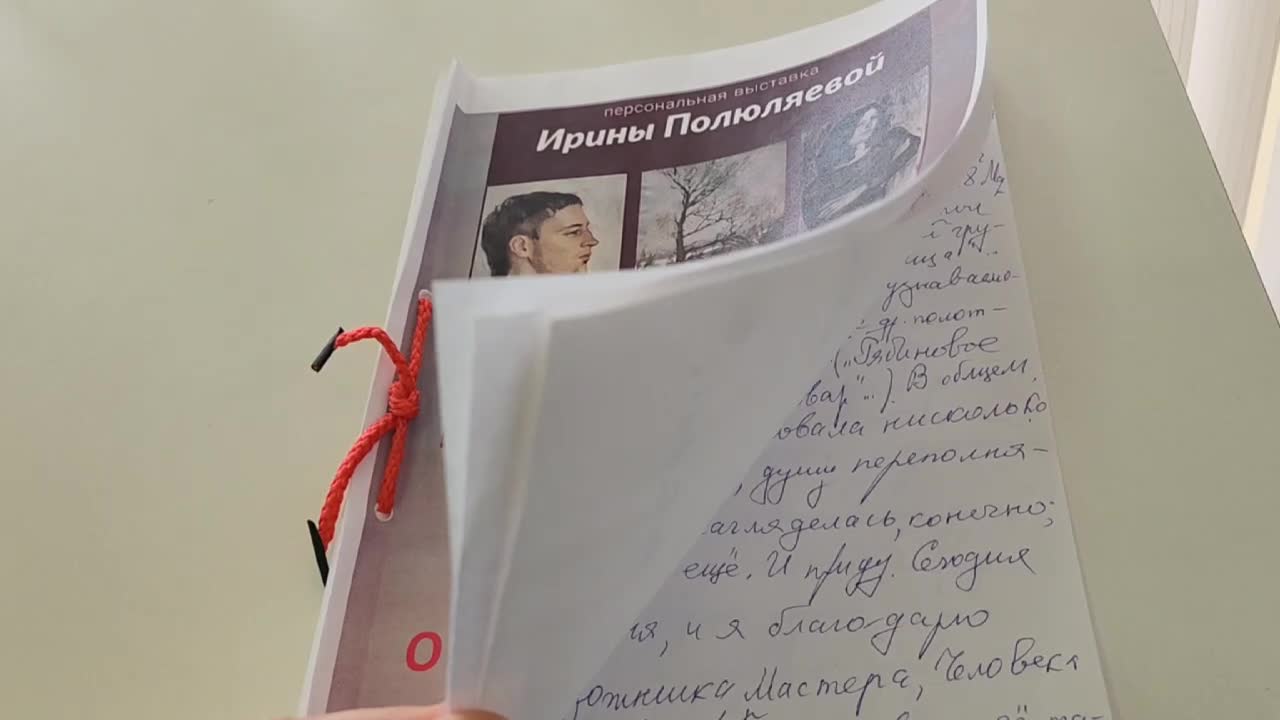 персональная выставка
Ирины Полюляевой
О
8
й гру-
узнаваемо-
др. полот-
("Рябиновое
вар"...). В общем,
овала нисколько
, душу переполня-
агляделась, конечно;
ещё. И приду. Сегодня
ня, и я благодарю
ожника Мастера, Человека